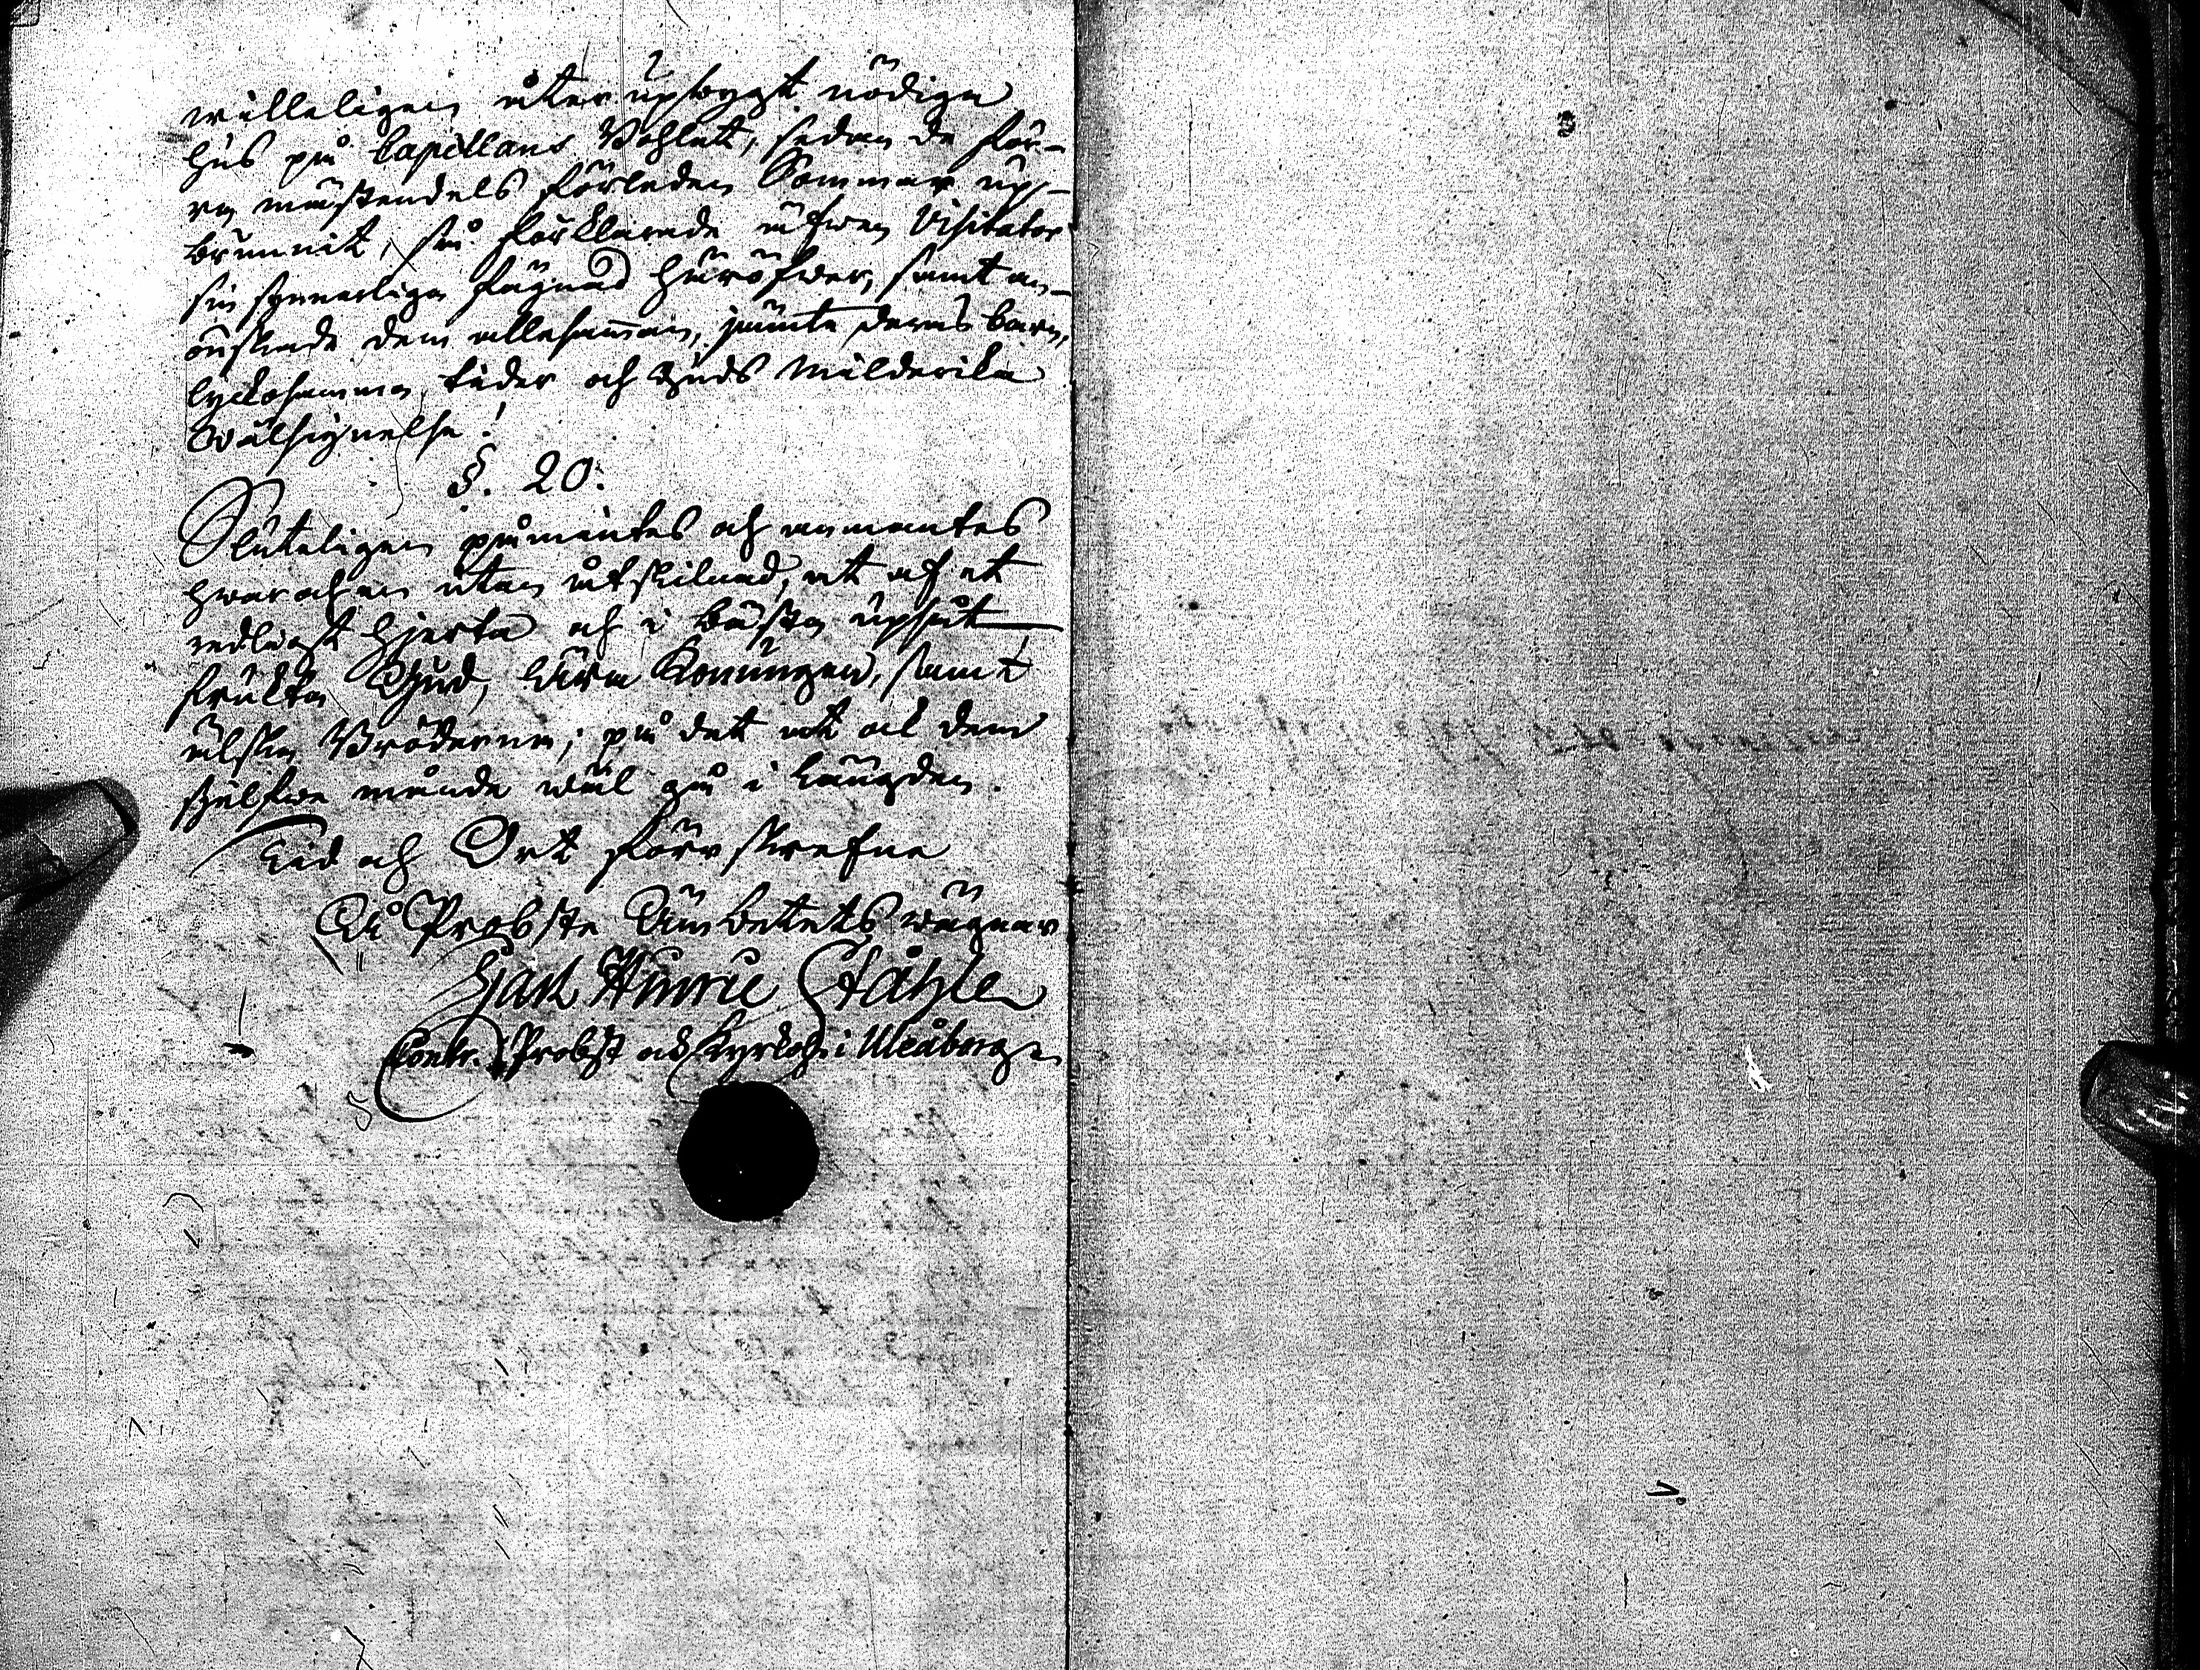 willeligen åter upbygt nödiga
hus på Capellans Bohlet, sedan de för-
ra mästendels förleden Sommar up-
brunnit, så förklarade äfwen Visitator
sin synnerliga fägnad häröfwer, samt an-
önskade dem allesamman, jämte deras barn,
lyckosamma tider och Guds Milderika
Wälsignelse!
§. 20.
Sluteligen påmintes och anmantes
hwar och en utan åtskilnad, at af et
redligt hjerta och i bästa upsåt
frukta Gud, ära Konungen, samt
älska Bröderna; på det at ock dem
sjelfwe månde wäl gå i Längden.
Tid och Ort förr skrefne
På Probste Ämbetets wägnar
Ståhle
Contr. Probst och Kyrkoh: i Uleåborg